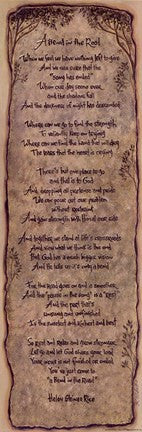 A Bend in the Road
When we feel we have nothing left to give
And we are sure that the
"song has ended"
When our day seems over
and the shadows fall
And the darkness of night has descended
Where can we go to find the strength
To valiantly keep on trying
Where can we find the hand that will dry
The tears that the heart is crying
There's but one place to go
and that is to God
And, dropping all pretense and pride
We can pour out our problems
without restraint
And gain strength with Him at our side
And together we stand at life's crossroads
And view what we think is the end
But God has a much bigger vision
And He tells us it's only a bend
For the road goes on and is smoother
And the "pause in the song" is a "rest"
And the part that's
unsung and unfinished
Is the sweetest and richest and best
So rest and relax and grow stronger
Let go and let God share your load
Your work is not finished or ended
You've just come to
"a Bend in the Road"
Helen Steiner Rice